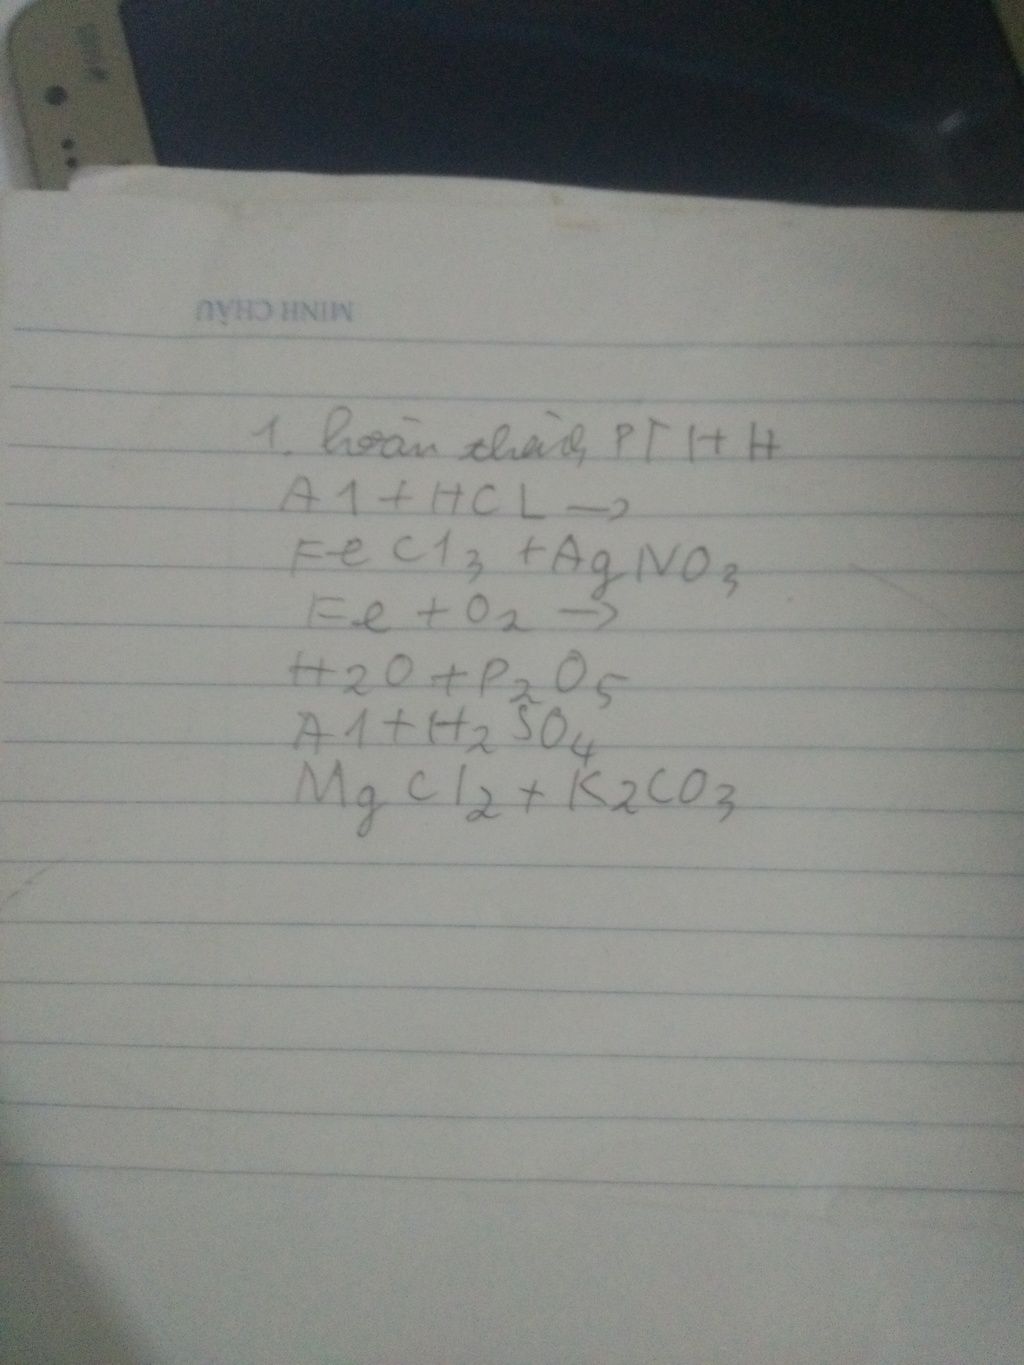 MINH CHÂU
1. hoàn thành PTHH
A1 + HCL →
FeCl3 + AgNO3
Fe + O2 →
H2O + P2O5
A1 + H2SO4
MgCl2 + K2CO3